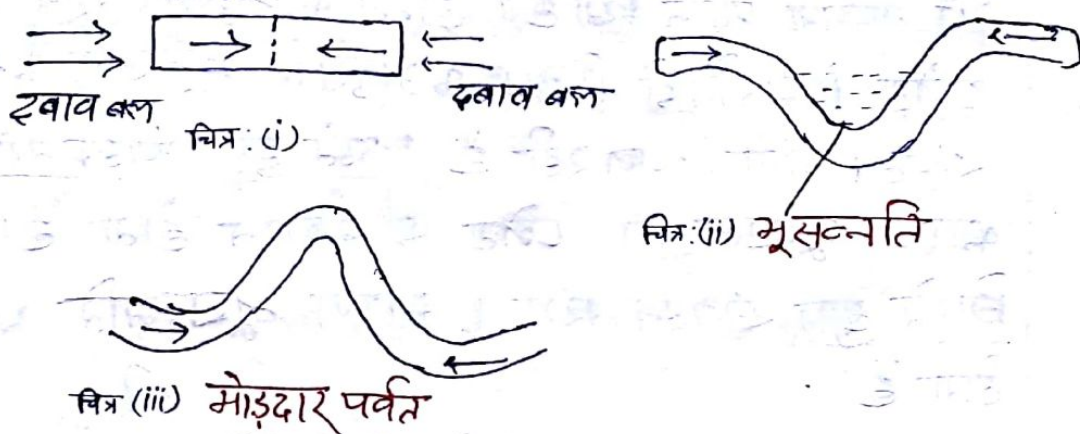 दबाव बल
दबाव बल
चित्र : (i)
चित्र: (ii) भूसन्नति
चित्र (iii) मोड़दार पर्वत